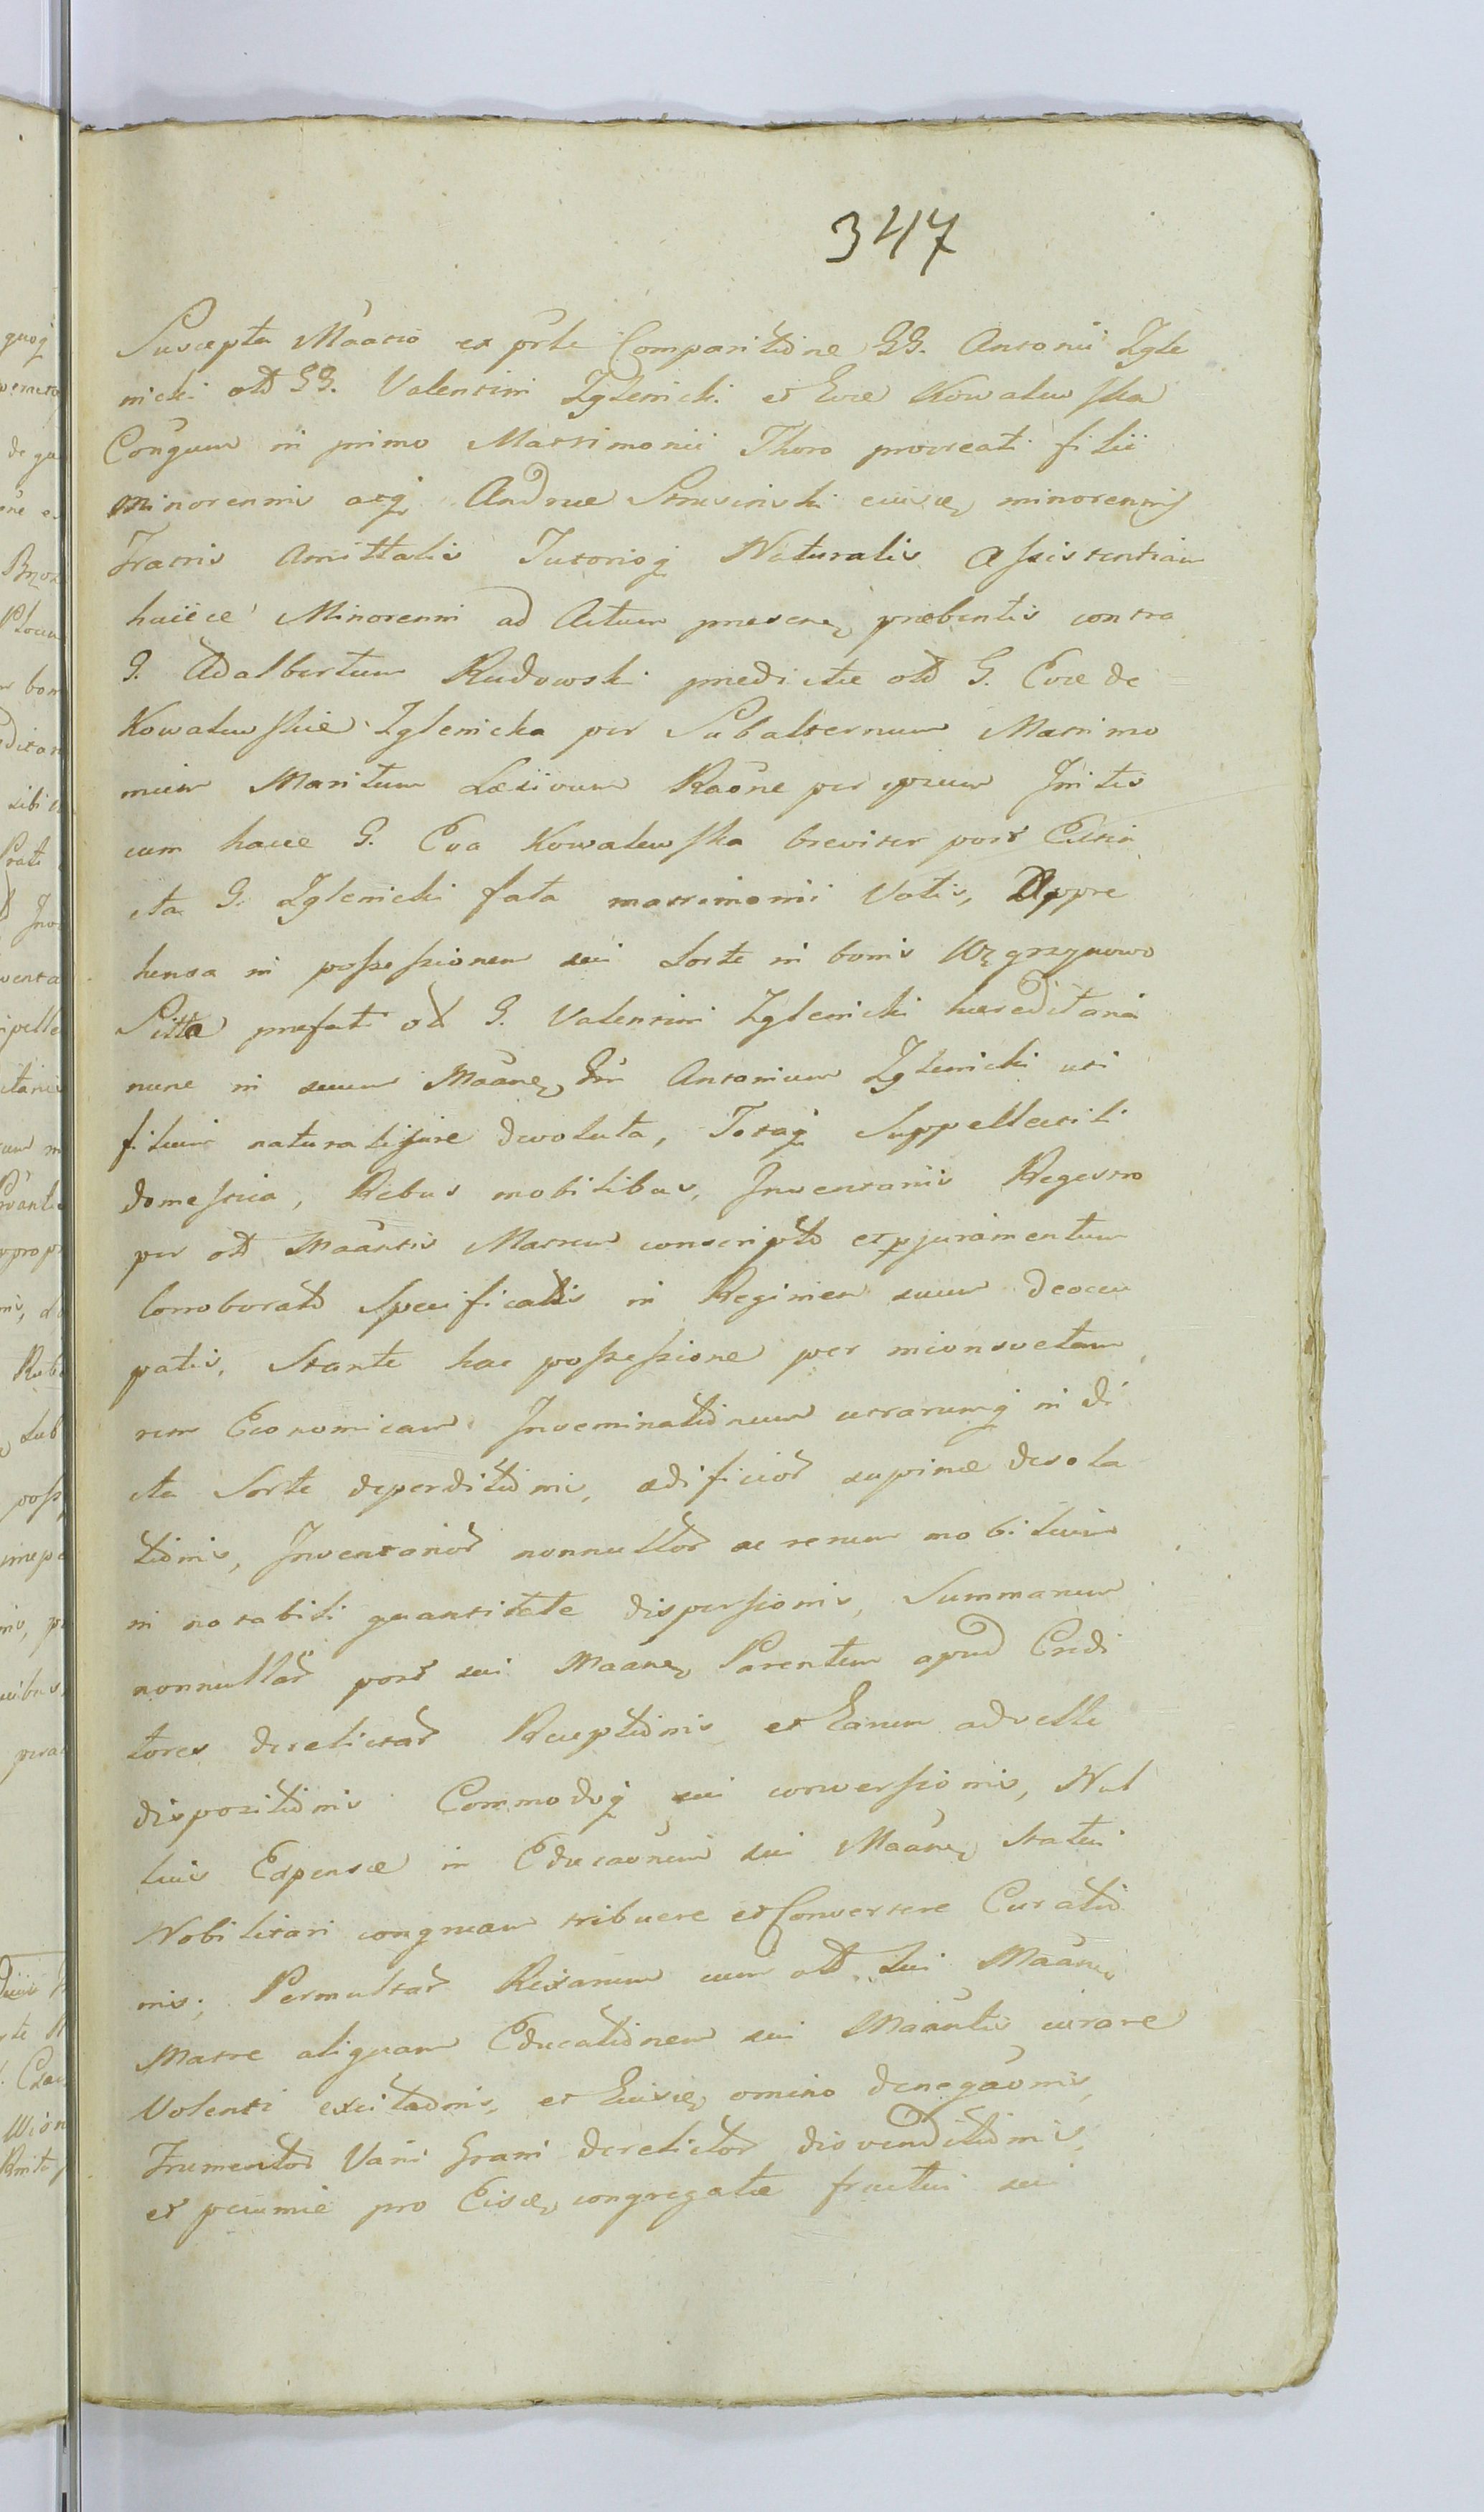 347
Suscepta Mãatio ex pr̃te Comparitiõne GG. Antonii Zgle
nicki olt̃ GG. Valentini Zglenicki et Evæ Kowalewska
Coñgum in primo Matrimonii Thoro procreati filii
minorennis atq̃ Andreæ Strusinski eiusd minorennis
Fratris Amittalis Tutoriq̃ Naturalis Assistentiam
huicce Minorenni ad Actum præsen præbentis contra
G. Adalbertum Rudowski predictæ olt̃ G. Evæ de
Kowalewskie Zglenicka per Subalternum Matrimo
nium Maritum Læsivum Raõne per ipsum Initis
cum hacce G. Eva Kowalewska breviter post Extin
cta G. Zglenicki fata matrimonii Votis, Appre
hensa in possessionem sui Sorte in bonis Węgrzynowo
Sitta præfati olt̃ G. Valentini Zglenicki hæreditaria
nunc in suum Mãane Gm Antonium Zglenicki uti
filium naturali jure devoluta, Totaq̃ Suppellectili
domestica, Rebus mobilibus, Inventariis Regestro
per olt̃ Mãantis Matrem conscripto et p juramentum
Corroborato Specificatis in Regimen suum deoccu
patis, Stante hac possessione per inconsuetam
rem Economicam Inseminatiõnum utrarumq̃ in di
cta Sorte deperditiõnis, ædificior̃ supinæ desola
tiõnis, Inventarior̃ nonnullor̃ ac rerum mobilium
in notabili quantitate dispersionis, Summarum
nonnullar̃ post sui Mãane Parentem apud Credi
tores derelictar̃ Receptiõnis et Earum ad velle
dispositiõnis Commodoq̃ sui conversionis, Nul
lius Expensæ in Educaõnem sui Mãane statui
Nobilitari congruam tribuere et Convertere Curatiõ
nis, Permultar̃ Rixarum cum olt̃ sui Mãane
Matre aliquam Educatiõnem sui Mãantis curare
Volenti excitaõnis, et Eiusd omino denegaõnis,
Frumentor̃ Varii Grani derelictor̃ disvenditiõnis,
et pecuniæ pro Eisd congregatæ fructui sui